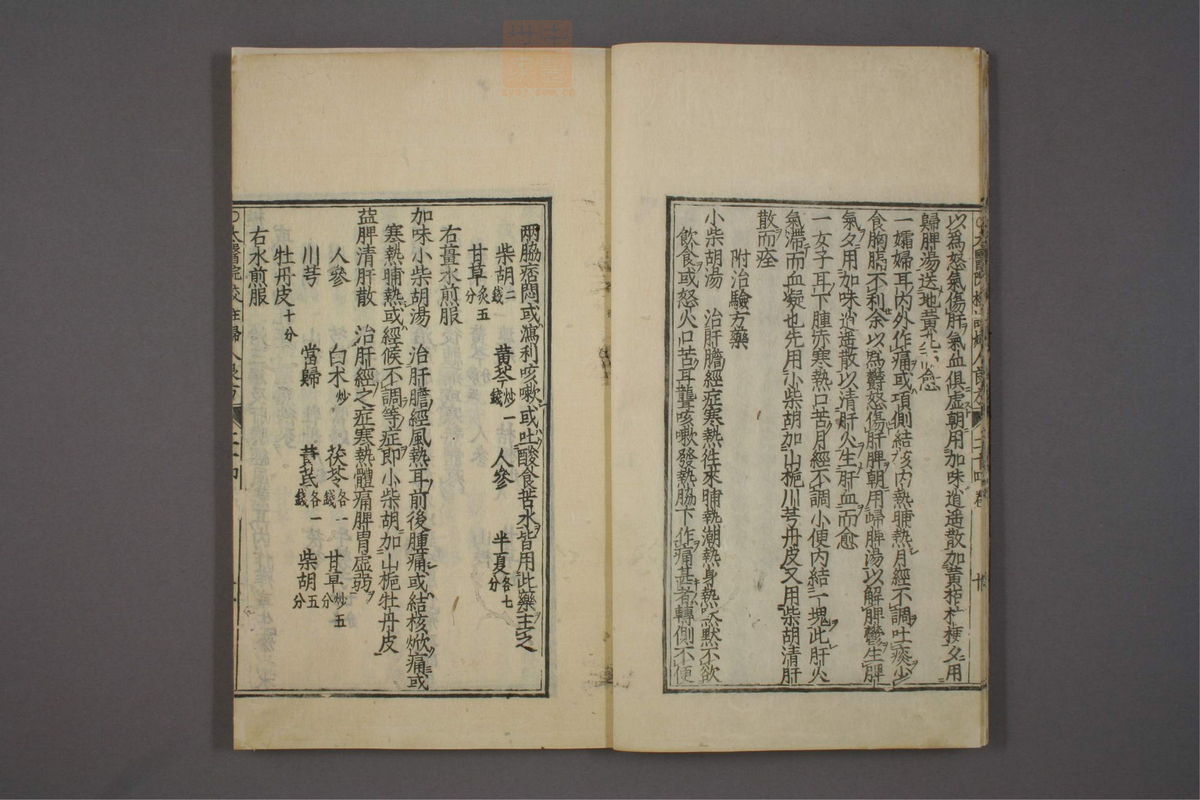 以爲怒氣傷肝氣血俱虛朝用加味逍遙散加黃柏桔梗夕用
歸脾湯送地黃丸而愈
一孀婦耳內外作痛或項側結核內熱晡熱月經不調吐痰少
食胸膈不利余以爲鬱怒傷肝脾朝用歸脾湯以解脾鬱生脾
氣夕用加味逍遙散以清肝火生肝血而愈
一女子耳下腫赤寒熱口苦月經不調小便內結一塊此肝火
氣滯而血凝也先用小柴胡加山梔川芎丹皮又用柴胡清肝
散而痊
附治驗方藥
小柴胡湯　治肝膽經症寒熱徃來晡熱潮熱身熱默默不欲
飲食或怒火口苦耳聾咳嗽發熱脇下作痛甚者轉側不便
兩脇痞悶或瀉利咳嗽或吐酸食苦水皆用此藥主之
柴胡二錢　黃芩炒一錢　人參　半夏各七分
甘草炙五分
右薑水煎服
加味小柴胡湯　治肝膽經風熱耳前後腫痛或結核焮痛或
寒熱晡熱或經候不調等症即小柴胡加山梔牡丹皮
益脾清肝散　治肝經之症寒熱體痛脾胃虛弱
人參　白朮炒　茯苓各一錢　甘草炒五分
川芎　當歸　黃芪各一錢　柴胡五分
牡丹皮十分
右水煎服